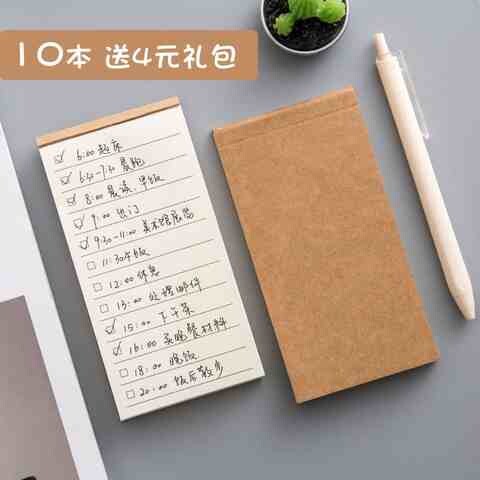 10本 送4元礼包
6:00 起床
6:40-7:30 晨跑
8:00 晨读、早饭
9:00 出门
9:30-11:00 美术馆展览
11:30 午饭
12:00 休息
13:00 处理邮件
15:00 下午茶
16:00 买晚餐材料
18:00 晚饭
20:00 饭后散步